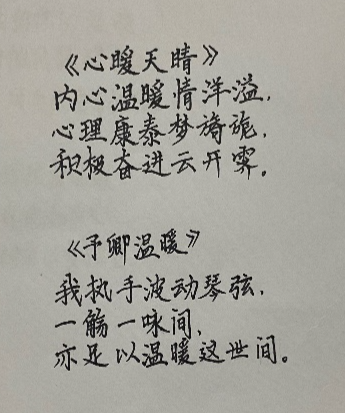 《心暖天晴》
内心温暖情洋溢,
心理康泰梦旖旎,
积极奋进云开霁。
《予卿温暖》
我执手波动琴弦,
一觞一咏间,
亦足以温暖这世间。